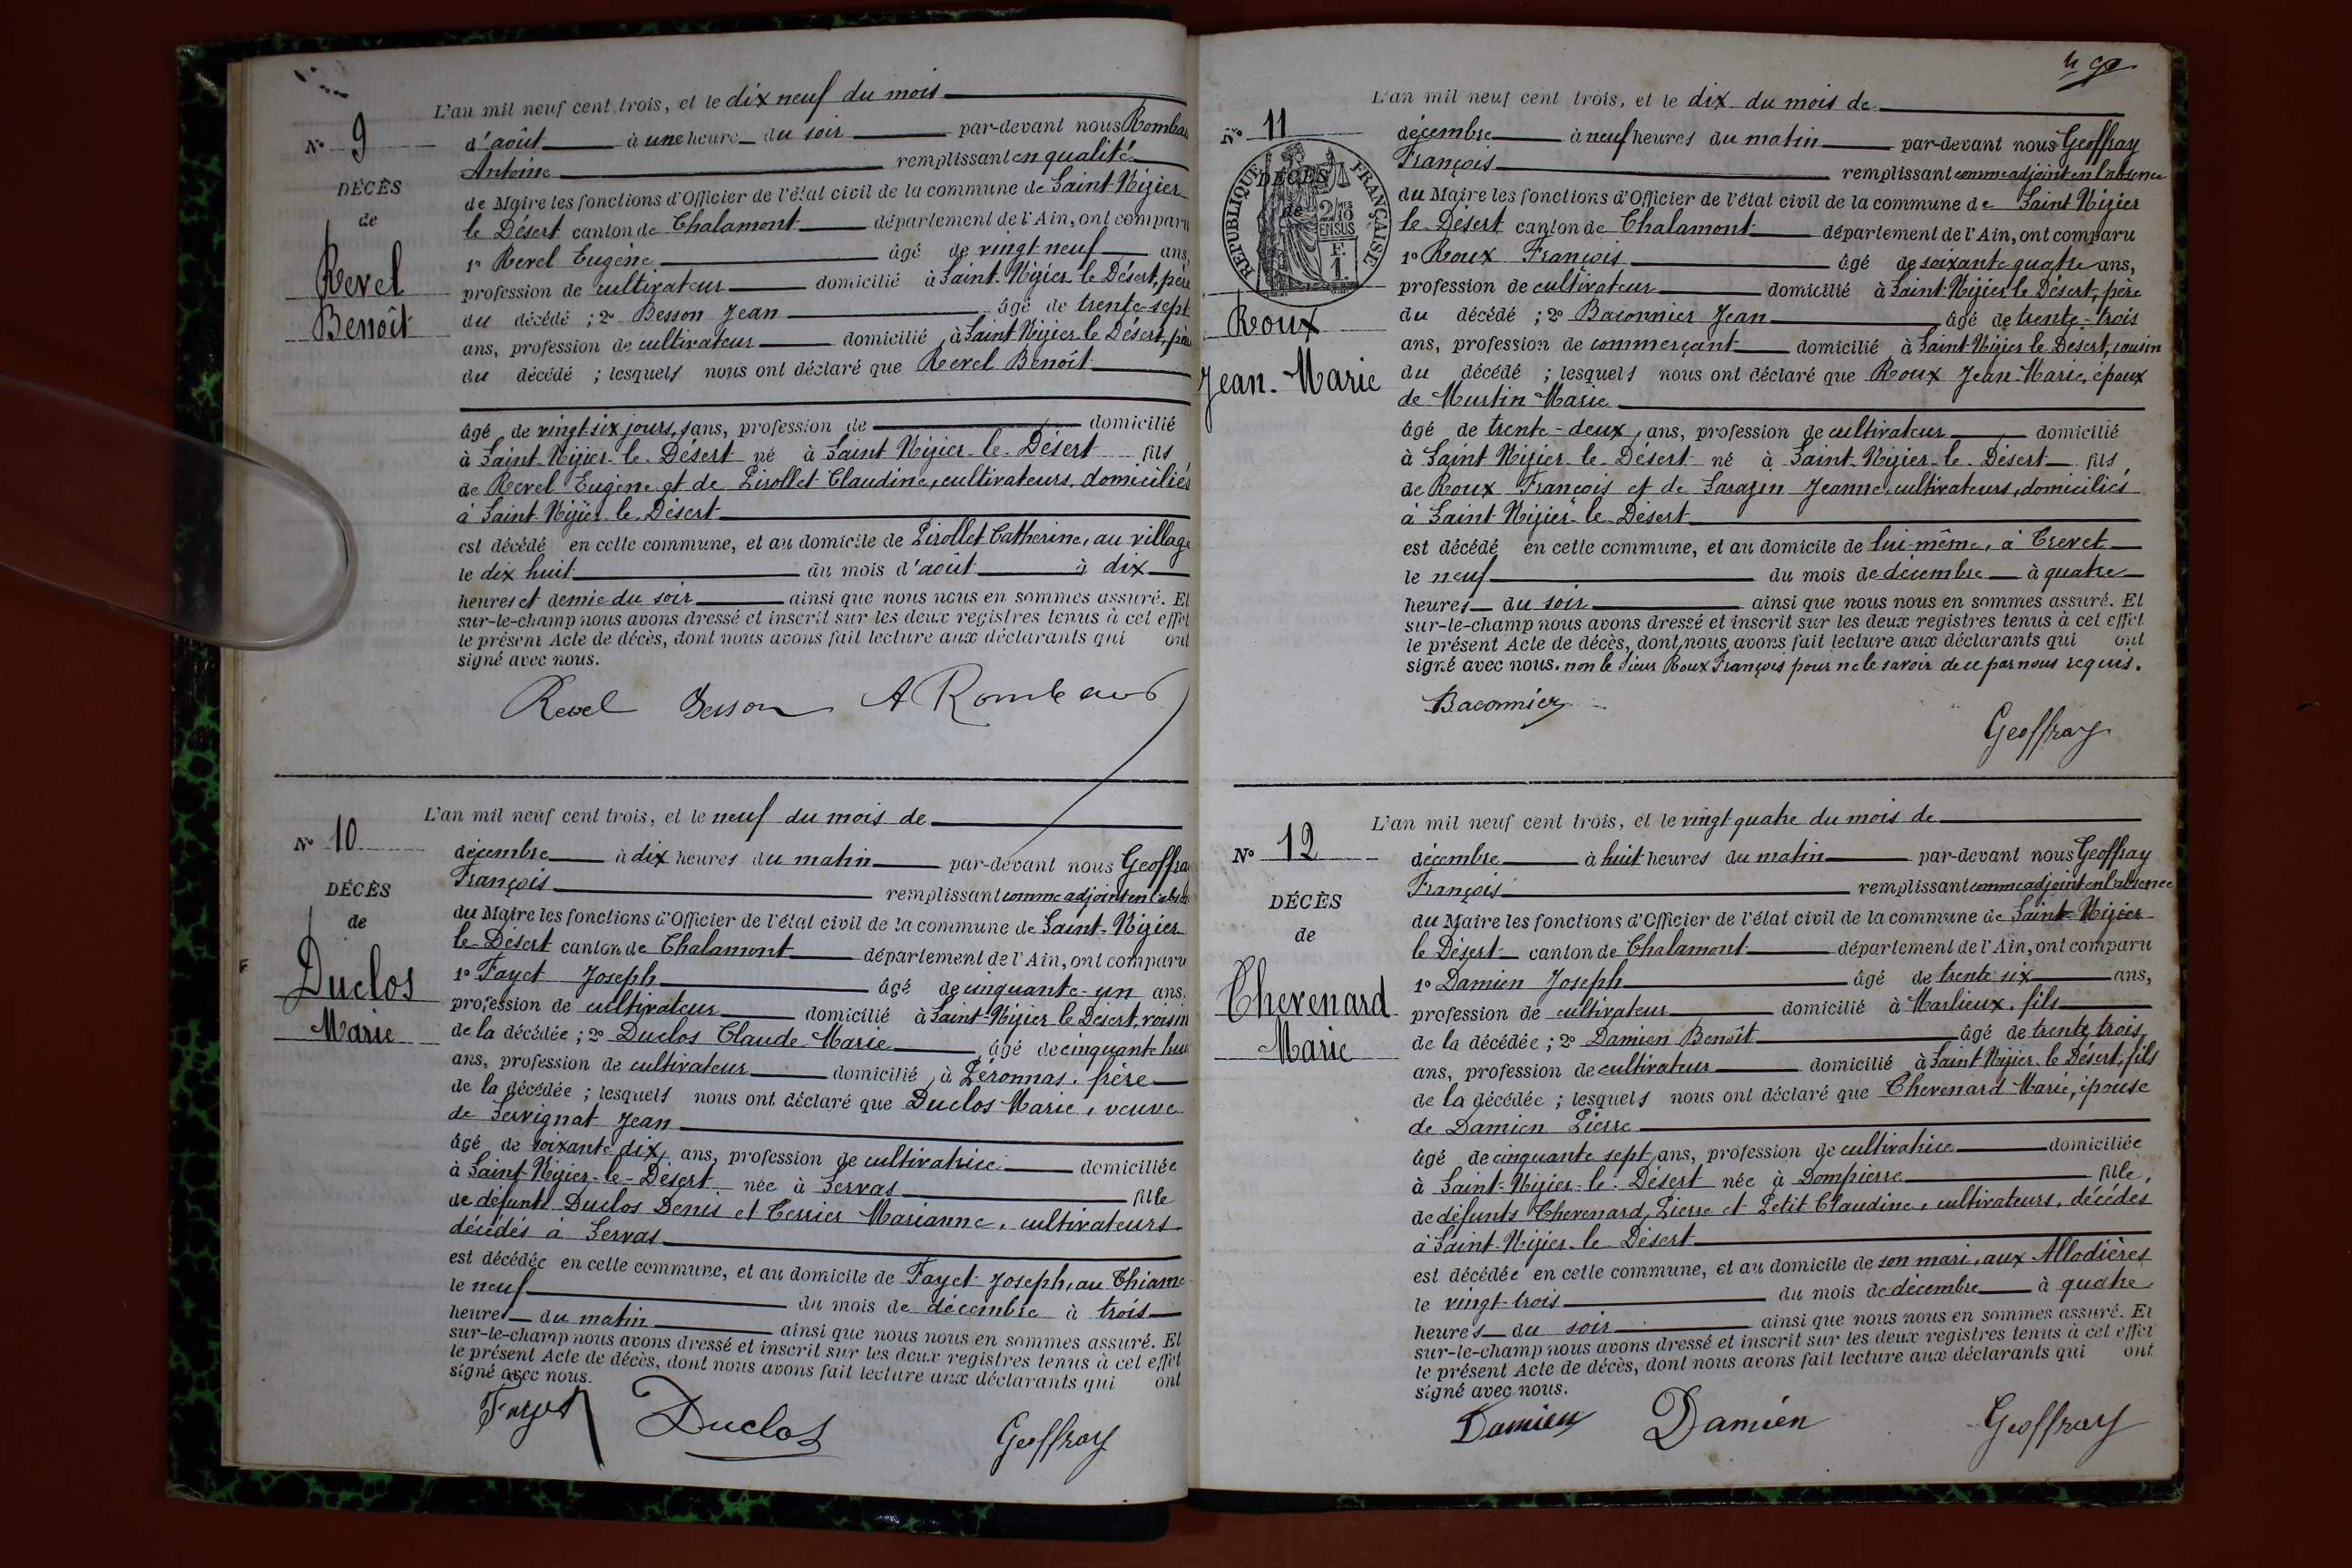 N° 9
DÉCÈS
de
Revel
Benoît
L'an mil neuf cent trois, et le dix neuf du mois
d'août à une heure du soir par-devant nous Rombau
Antoine remplissant en qualité
de Maire les fonctions d'Officier de l'état civil de la commune de Saint-Nizier
le Désert canton de Chalamont département de l'Ain, ont comparu
1° Revel Eugène âgé de vingt neuf ans,
profession de cultivateur domicilié à Saint-Nizier le Désert, père
du décédé ; 2° Besson Jean âgé de trente-sept
ans, profession de cultivateur domicilié à Saint Nizier le Désert,
du décédé ; lesquels nous ont déclaré que Revel Benoît
âgé de vingt-six jours, ans, profession de domicilié
à Saint-Nizier-le-Désert né à Saint Nizier-le-Désert fils
de Revel Eugène et de Pirollet Claudine, cultivateurs, domiciliés
à Saint-Nizier-le-Désert
est décédé en cette commune, et au domicile de Pirollet Catherine, au village
le dix huit du mois d'août à dix
heures et demie du soir ainsi que nous nous en sommes assuré. Et
sur-le-champ nous avons dressé et inscrit sur les deux registres tenus à cet effet
le présent Acte de décès, dont nous avons fait lecture aux déclarants qui ont
signé avec nous.
Revel Besson A Rombaud
N° 10
DÉCÈS
de
Duclos
Marie
L'an mil neuf cent trois, et le neuf du mois de
décembre à dix heures du matin par-devant nous Geoffra
François remplissant comme adjoint en l'abse
du Maire les fonctions d'Officier de l'état civil de la commune de Saint-Nizier
le Désert canton de Chalamont département de l'Ain, ont comparu
1° Fayet Joseph âgé de cinquante-un ans.
profession de cultivateur domicilié à Saint-Nizier le Désert, voisin
de la décédée ; 2° Duclos Claude Marie âgé de cinquante hui
ans, profession de cultivateur domicilié à Péronnas, frère
de la décédée ; lesquels nous ont déclaré que Duclos Marie, veuve
de Servignat Jean
âgé de soixante-dix, ans, profession de cultivatrice domiciliée
à Saint-Nizier-le-Désert née à Servas fille
de défunts Duclos Denis et Terrier Marianne, cultivateurs
décédés à Servas
est décédée en cette commune, et au domicile de Fayet Joseph, au Thiame
le neuf du mois de décembre à trois
heures du matin ainsi que nous nous en sommes assuré. Et
sur-le-champ nous avons dressé et inscrit sur les deux registres tenus à cet effet
le présent Acte de décès, dont nous avons fait lecture aux déclarants qui ont
signé avec nous.
Fayet Duclos Geoffray
N° 11
RÉPUBLIQUE FRANÇAISE
2/10 EN SUS
F. 1.
DÉCÈS
de
Roux
Jean-Marie
L'an mil neuf cent trois, et le dix du mois de
décembre à neuf heures du matin par-devant nous Geoffray
François remplissant comme adjoint en l'absence
du Maire les fonctions d'Officier de l'état civil de la commune de Saint Nizier
le Désert canton de Chalamont département de l'Ain, ont comparu
1° Roux François âgé de soixante quatre ans,
profession de cultivateur domicilié à Saint-Nizier le Désert, père
du décédé ; 2° Baconnier Jean âgé de trente-trois
ans, profession de commerçant domicilié à Saint-Nizier le Désert, cousin
du décédé ; lesquels nous ont déclaré que Roux Jean-Marie, époux
de Murtin Marie
âgé de trente-deux, ans, profession de cultivateur domicilié
à Saint Nizier-le-Désert né à Saint-Nizier-le-Désert fils
de Roux François et de Sarazin Jeanne, cultivateurs, domiciliés
à Saint Nizier-le-Désert
est décédé en cette commune, et au domicile de lui-même, à Trevet
le neuf du mois de décembre à quatre
heures du soir ainsi que nous nous en sommes assuré. Et
sur-le-champ nous avons dressé et inscrit sur les deux registres tenus à cet effet
le présent Acte de décès, dont nous avons fait lecture aux déclarants qui ont
signé avec nous. non le sieur Roux François pour ne le savoir de ce par nous requis.
Baconnier
Geoffray
N° 12
DÉCÈS
de
Chevenard
Marie
L'an mil neuf cent trois, et le vingt quatre du mois de
décembre à huit heures du matin par-devant nous Geoffray
François remplissant comme adjoint en l'absence
du Maire les fonctions d'Officier de l'état civil de la commune de Saint-Nizier
le Désert canton de Chalamont département de l'Ain, ont comparu
1° Damien Joseph âgé de trente six ans,
profession de cultivateur domicilié à Marlieux, fils
de la décédée ; 2° Damien Benoît âgé de trente trois
ans, profession de cultivateur domicilié à Saint Nizier le Désert, fils
de la décédée ; lesquels nous ont déclaré que Chevenard Marie, épouse
de Damien Pierre
âgé de cinquante sept, ans, profession de cultivatrice domiciliée
à Saint-Nizier-le-Désert née à Dompierre fille,
de défunts Chevenard Pierre et Petit Claudine, cultivateurs, décédés
à Saint-Nizier-le-Désert
est décédée en cette commune, et au domicile de son mari, aux Allodières
le vingt-trois du mois de décembre à quatre
heures du soir ainsi que nous nous en sommes assuré. Et
sur-le-champ nous avons dressé et inscrit sur les deux registres tenus à cet effet
le présent Acte de décès, dont nous avons fait lecture aux déclarants qui ont
signé avec nous.
Damien Damien Geoffray